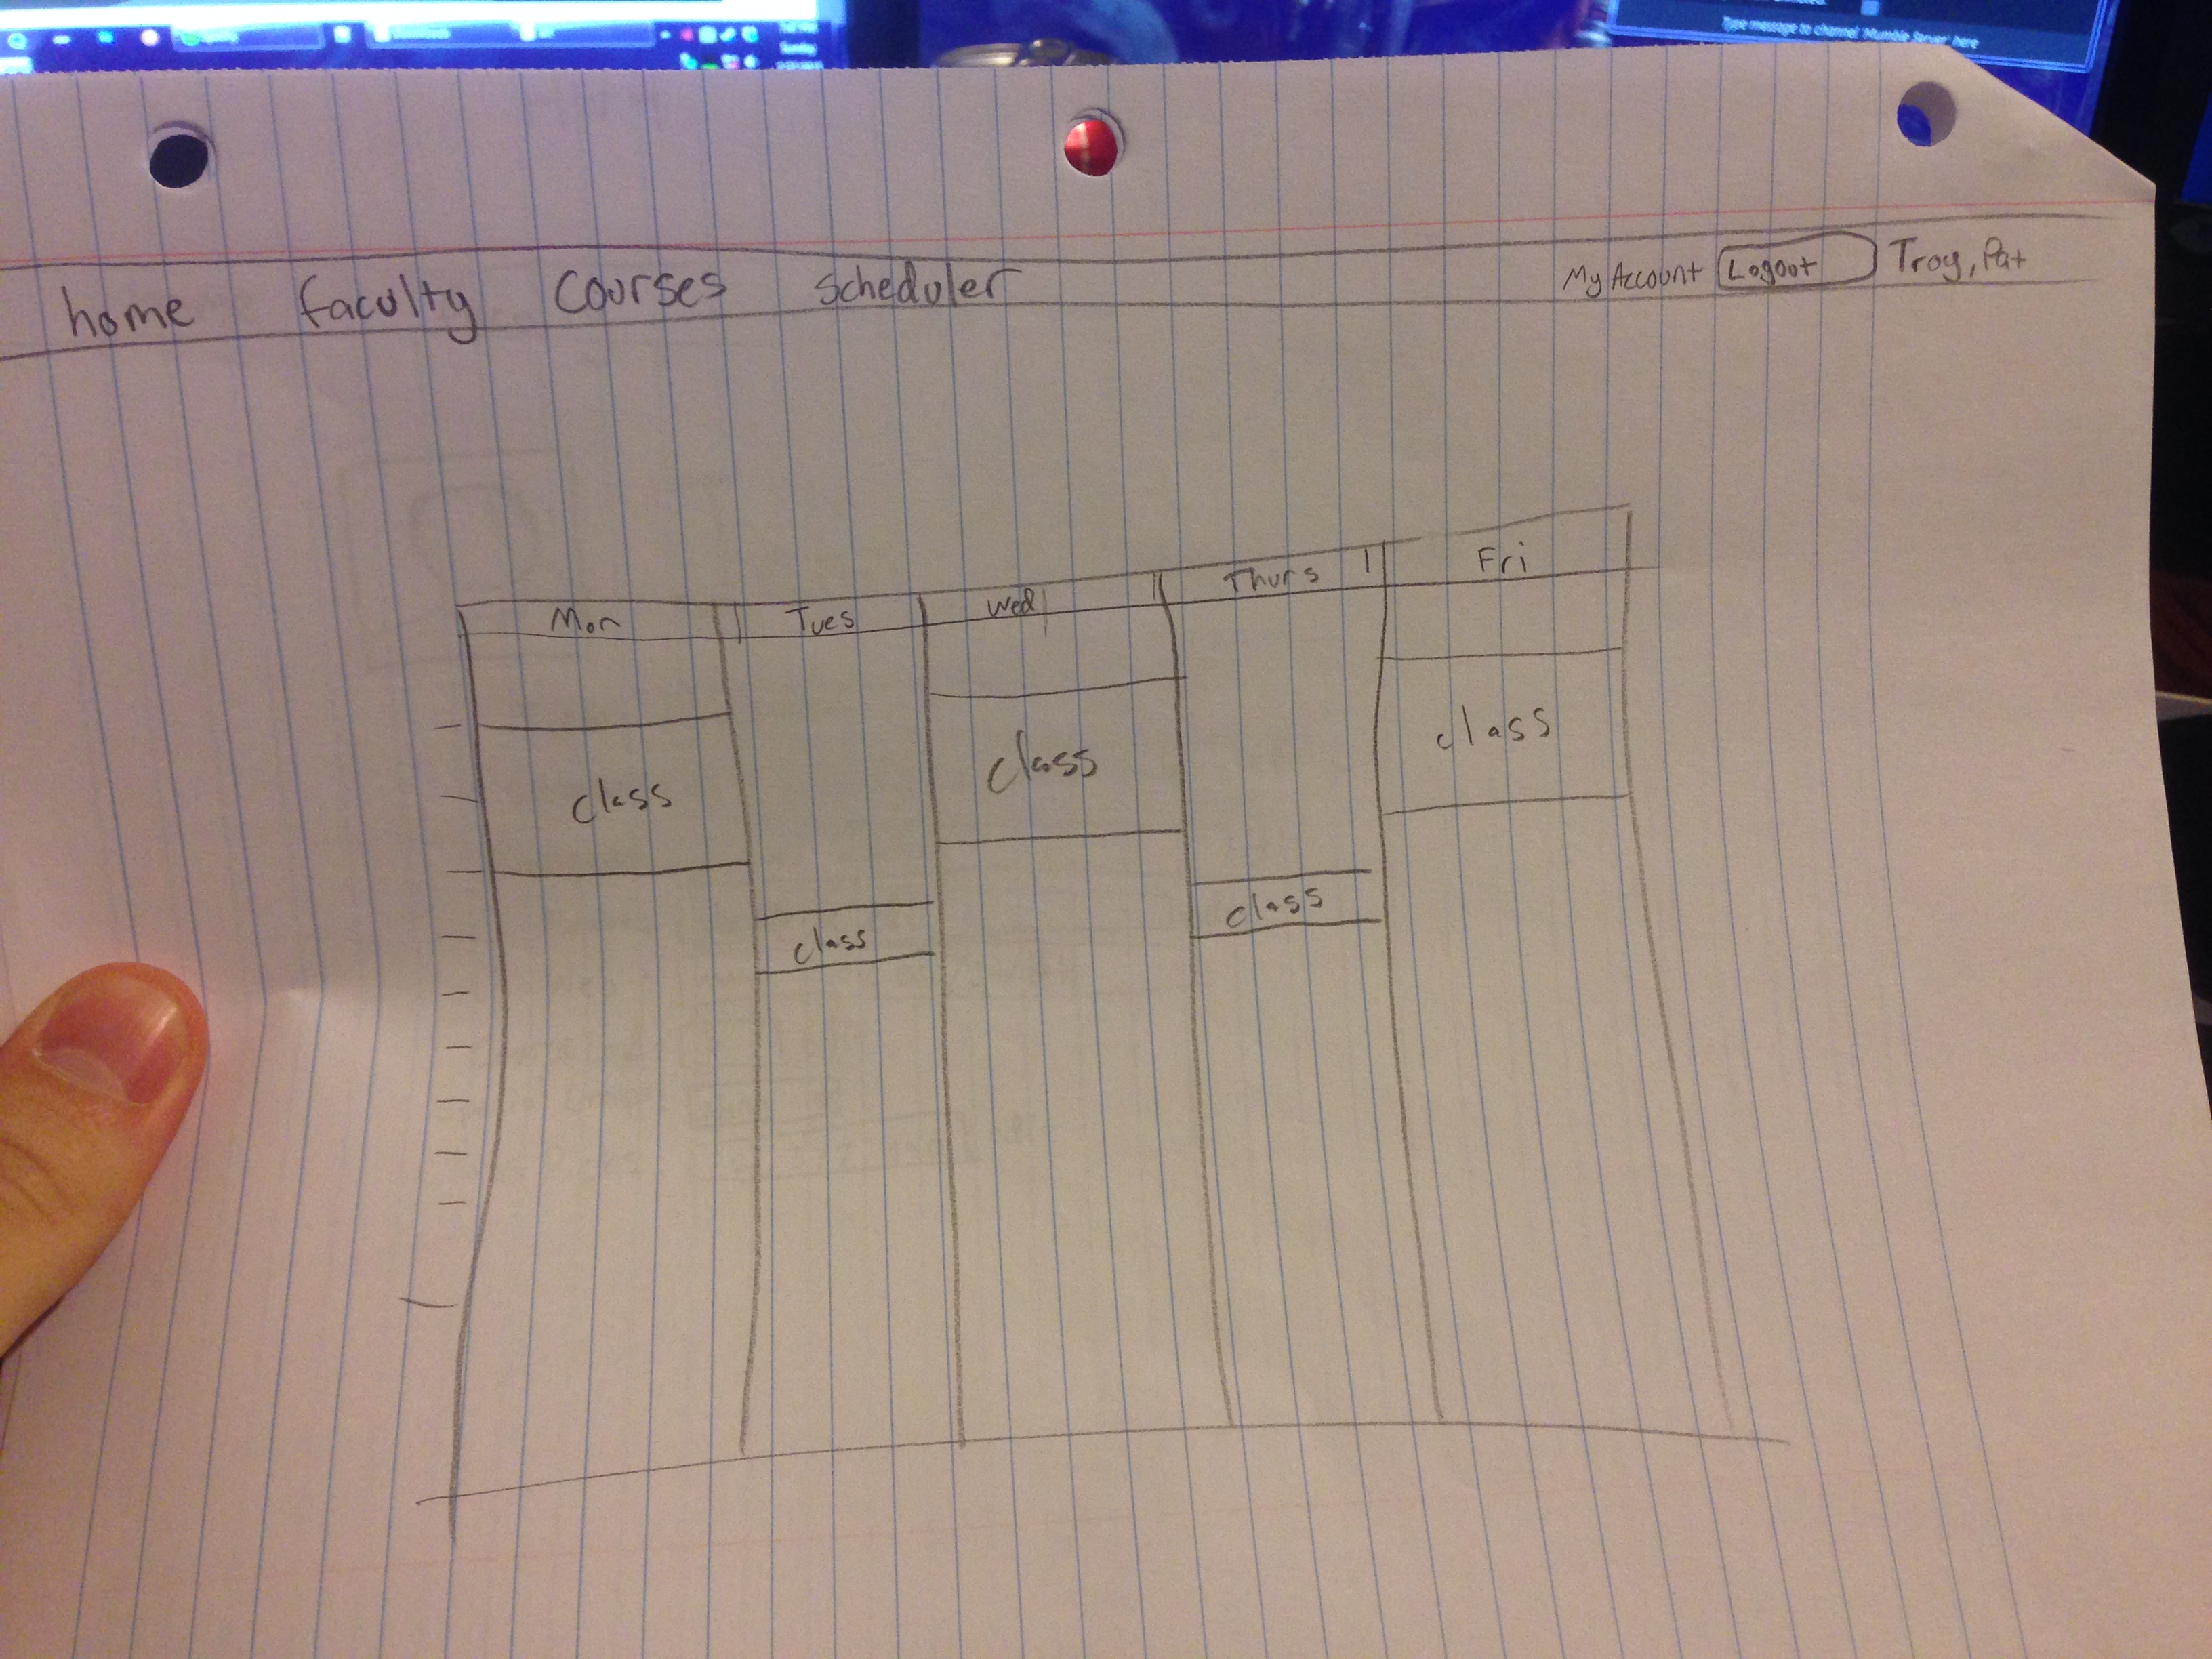 Sunday
Type message to channel 'Mumble Server' here
home faculty courses scheduler My Account Logout Troy, Pat
Mon Tues Wed Thurs Fri
class class class
class class